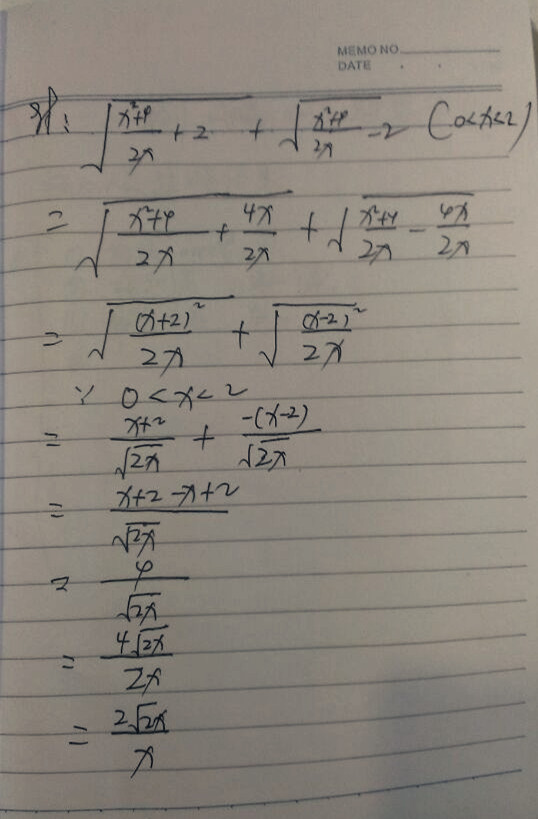 MEMO NO.
DATE . .
解: √((x²+4)/(2x) + 2) + √((x²+4)/(2x) - 2) (0<x<2)
= √((x²+4)/(2x) + (4x)/(2x)) + √((x²+4)/(2x) - (4x)/(2x))
= √((x+2)²/(2x)) + √((x-2)²/(2x))
∵ 0<x<2
= (x+2)/√(2x) + (-(x-2))/√(2x)
= (x+2-x+2)/√(2x)
= 4/√(2x)
= (4√(2x))/(2x)
= (2√(2x))/x